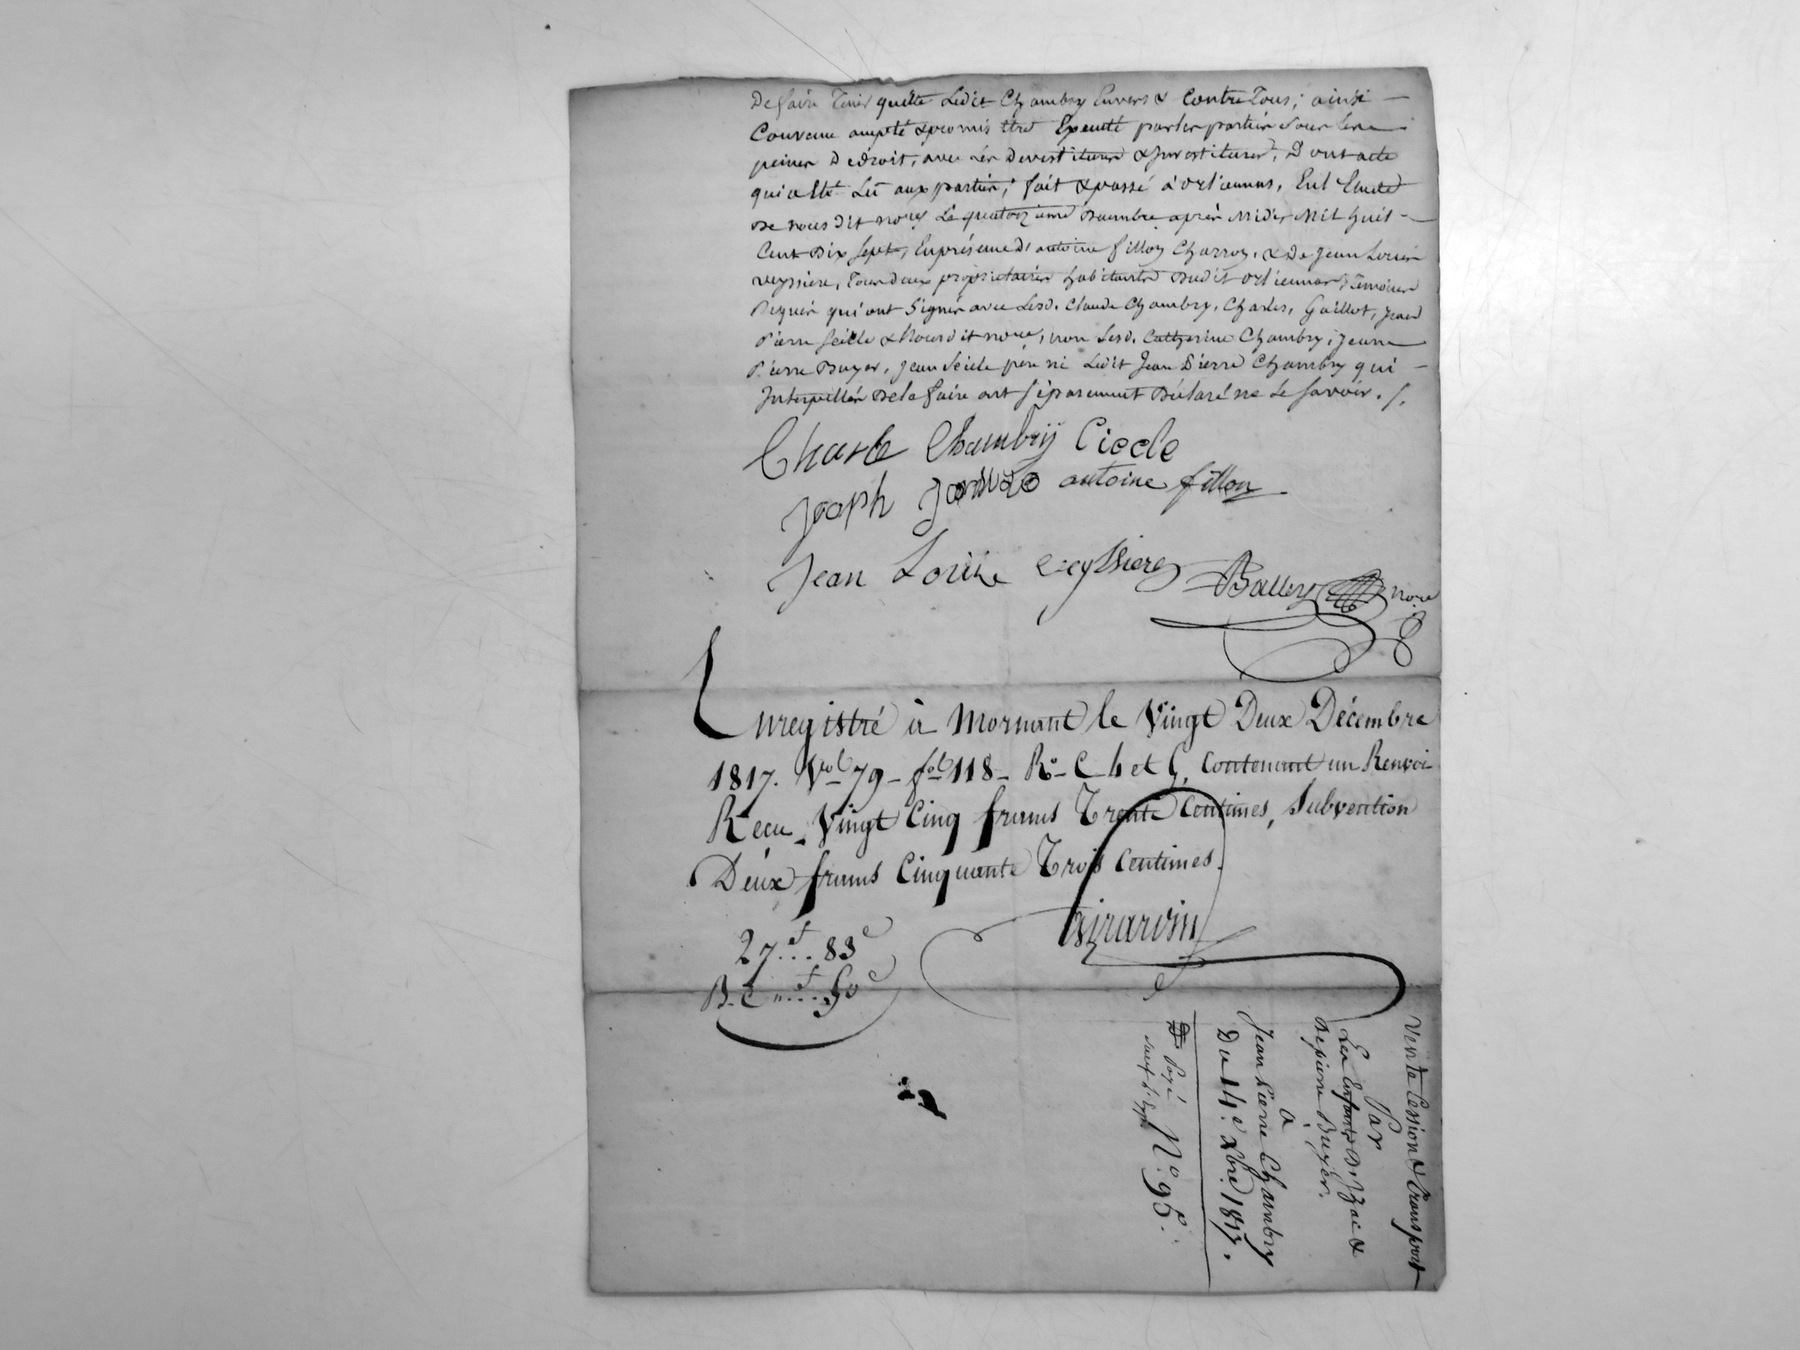 De faire Tenir quitte Ledit Chambry Envers & Contre Tous; ainsi
Convenu accepté & promis Etre Exécuté par les parties sous les
peines De droit, avec Les Devestitures & Investitures, Dont acte
qui a Eté Lu aux parties; fait & passé à orliennas, En L'Etude
De nous dit nore Le quatorzième Decembre après Midi, Mil huit
Cent Dix Sept, En présence D'antoine fillon Charron, & De Jean Louis
veyssiere, Tous deux propriétaires habitants Dudit orliennas, Témoins
Requis qui ont Signé avec Lesd. Claude Chambry, Charles, Guillot, Jean
Pierre Siecle & Nousdit nore, non Lesd. Catherine Chambry, Jeanne
Pierre Buyer, Jean Siecle père ni Ledit Jean Pierre Chambry qui
Interpellés De le faire ont séparement Déclaré ne Le Savoir. /.
Charle Chambry Ciecle
Joseph antoine fillon
Jean Louis veyssiere Balley nore
Enregistré à Mornant le Vingt Deux Décembre
1817. Vol 79 - fol 118 - Ro - C 4 et 5, Contenant un Renvoi
Reçu Vingt Cinq francs Trente Centimes, Subvention
Deux francs Cinquante Trois Centimes.
Girardin
27 f... 83 c
B. C " f.... 50 c
Vente Cession & Transport
Par
Les Enfants D' &
De pierre Buyer.
à
Jean Pierre Chambry
Du 14e Xbre 1817.
Payé No. 95.